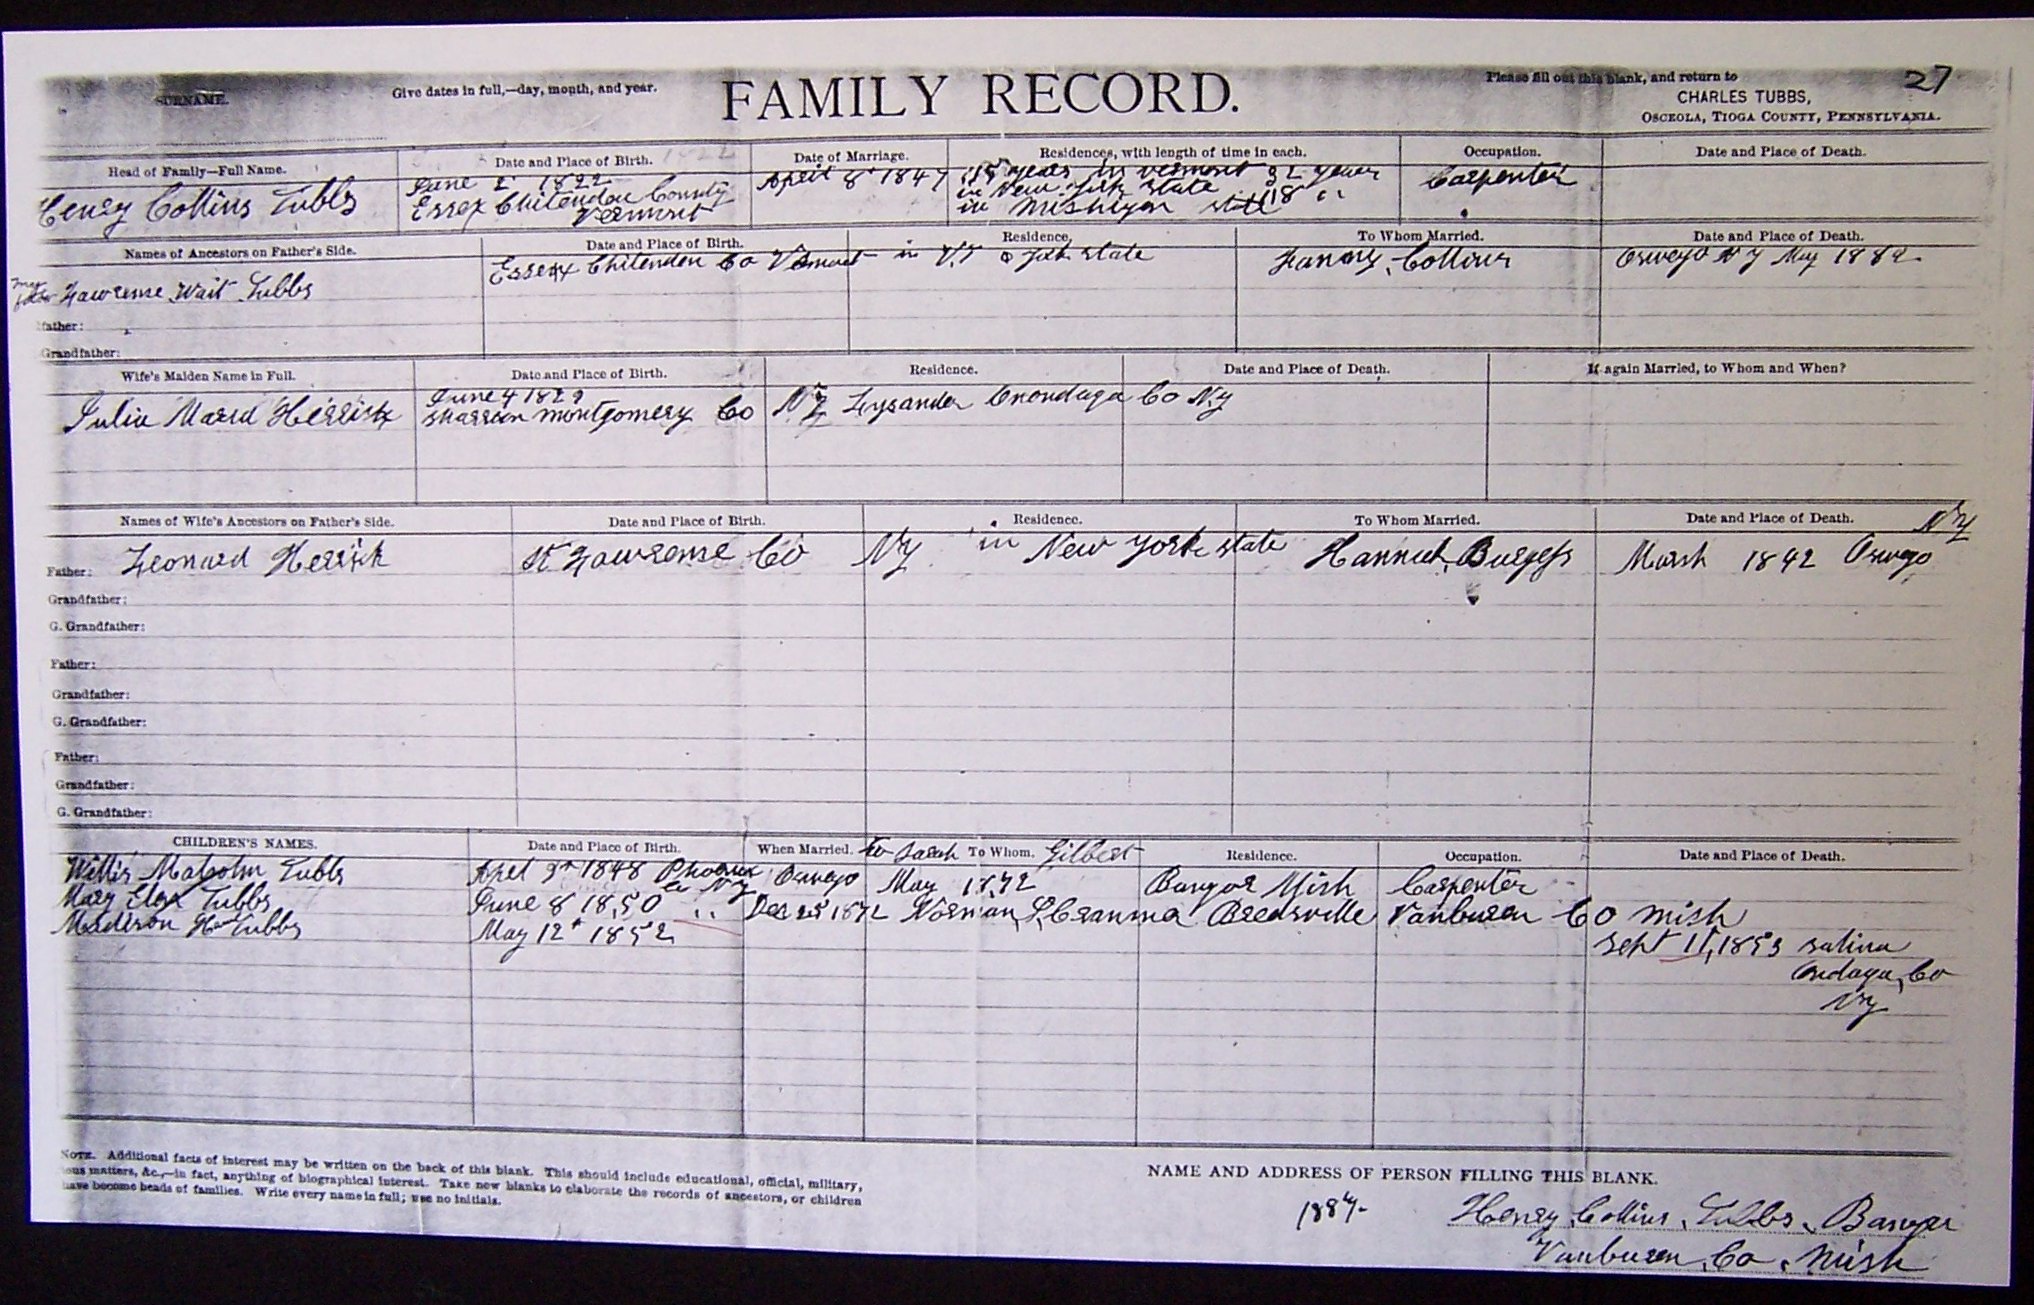 SURNAME.
Give dates in full,—day, month, and year.
FAMILY RECORD.
Please fill out this blank, and return to
27
CHARLES TUBBS,
OSCEOLA, TIOGA COUNTY, PENNSYLVANIA.
Head of Family—Full Name.
Date and Place of Birth. 1822
Date of Marriage.
Residences, with length of time in each.
Occupation.
Date and Place of Death.
Henry Collins Tubbs
June 2 1822
Essex Chitendon County
Vermont
April 8 1847
15 years in vermont 32 years
in New York State
in Mishigan state 18 "
Carpenter
Names of Ancestors on Father's Side.
Date and Place of Birth.
Residence.
To Whom Married.
Date and Place of Death.
my father Lawrense Wait Tubbs
Essex Chitendon Co Vermont
in V.T & York state
Fanny Collins
Oswego N Y May 1882
father:
Grandfather:
Wife's Maiden Name in Full.
Date and Place of Birth.
Residence.
Date and Place of Death.
If again Married, to Whom and When?
Julia Maria Herrick
June 4 1829
Sharron Montgomery Co N.Y
Lysander Onondaga Co N.y
Names of Wife's Ancestors on Father's Side.
Date and Place of Birth.
Residence.
To Whom Married.
Date and Place of Death.
Father: Leonard Herrick
St Lawrense Co NY
in New York state
Hannah Burgess
Marsh 1842 Oswego NY
Grandfather:
G. Grandfather:
Father:
Grandfather:
G. Grandfather:
Father:
Grandfather:
G. Grandfather:
CHILDREN'S NAMES.
Date and Place of Birth.
When Married.
to Sarah To Whom. Gilbert
Residence.
Occupation.
Date and Place of Death.
Willis Malcolm Tubbs
Apel 3th 1848 Phoenix Oswego
Co N.y
May 1872
Bangor Mish
Carpenter
Mary Tubbs
June 8 1850 "
Dec 25 1872 Norman L
Breedsville Vanburen Co Mish
Madison H Tubbs
May 12th 1852
Sept 11, 1853 Salina
Ondaga, Co
Ny
NOTE. Additional facts of interest may be written on the back of this blank. This should include educational, official, military,
ious matters, &c.,—in fact, anything of biographical interest. Take new blanks to elaborate the records of ancestors, or children
have become heads of families. Write every name in full; use no initials.
NAME AND ADDRESS OF PERSON FILLING THIS BLANK.
Henry Collins Tubbs, Bangor
Vanburen, Co, Mish